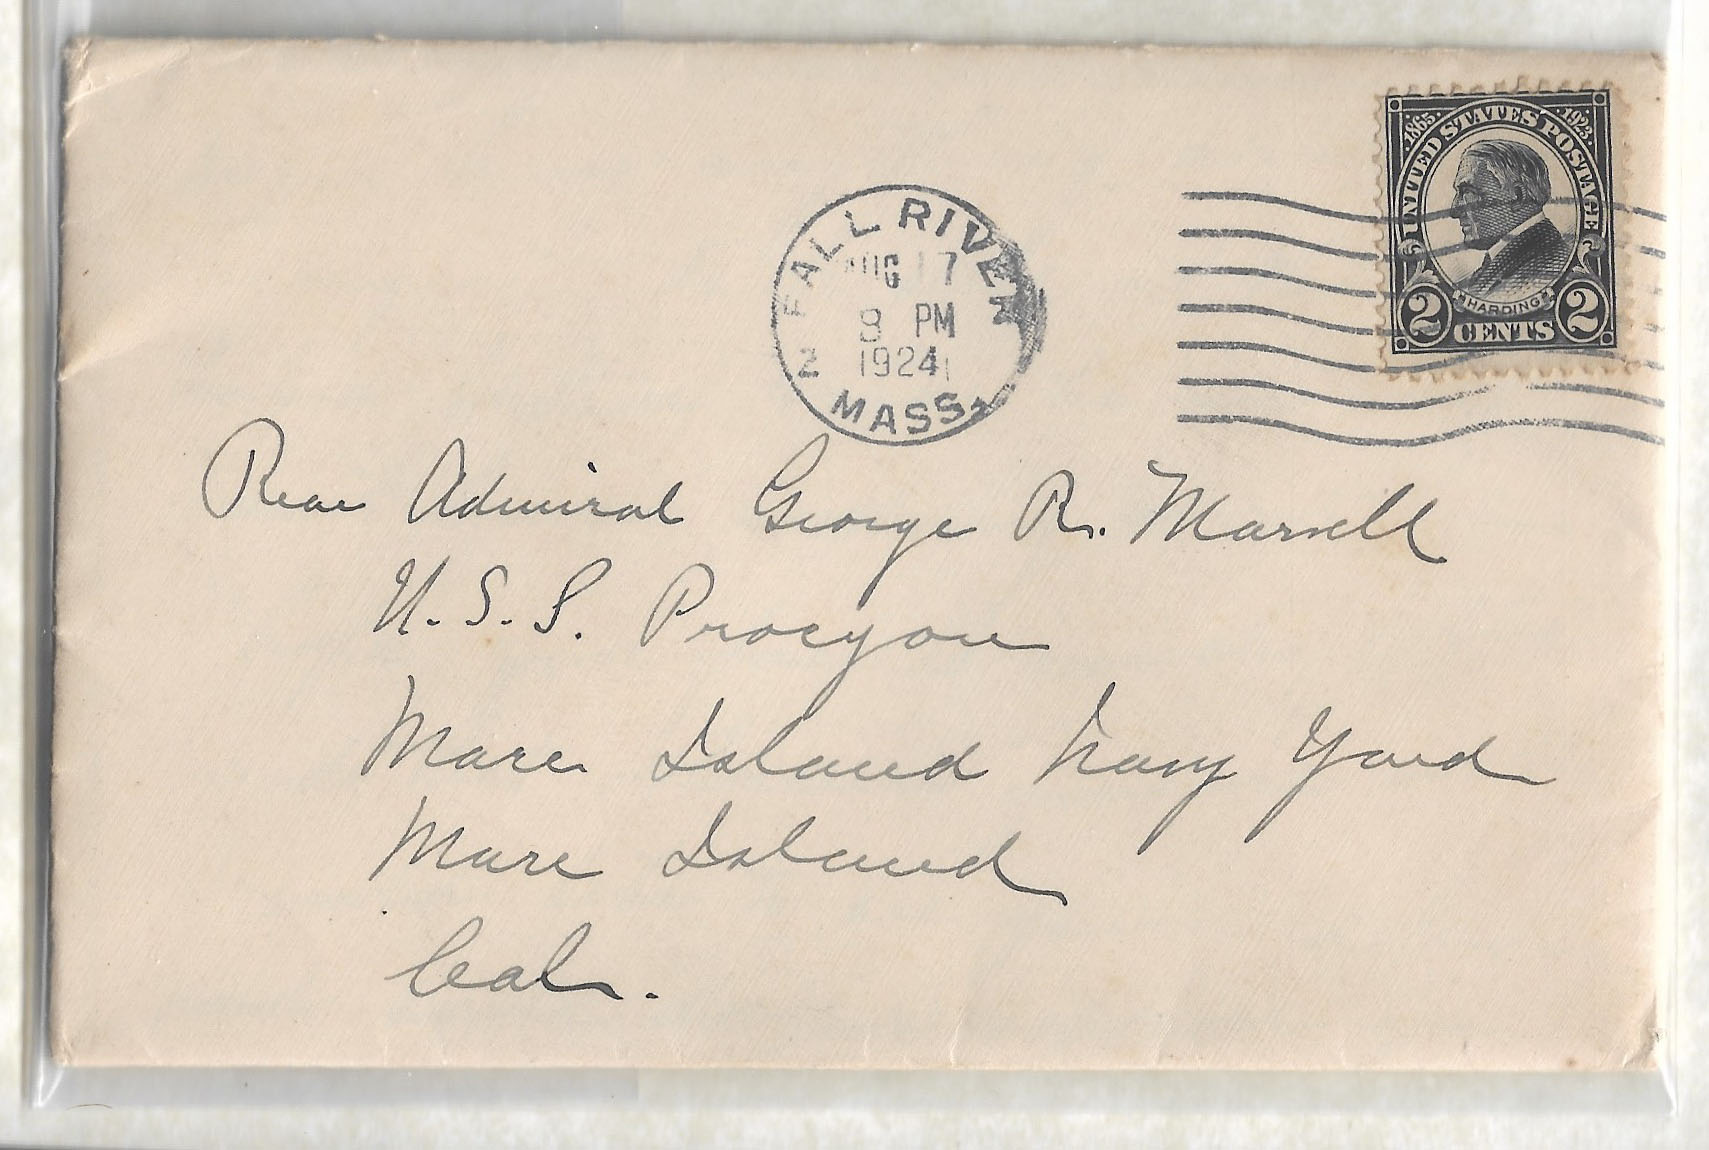 UNITED STATES POSTAGE
1865
1923
HARDING
2 CENTS 2
FALL RIVER
AUG 17
8 PM
1924
MASS.
2
Rear Admiral George R. Marvell
U.S.S. Procyon
Mare Island Navy Yard
Mare Island
Cal.